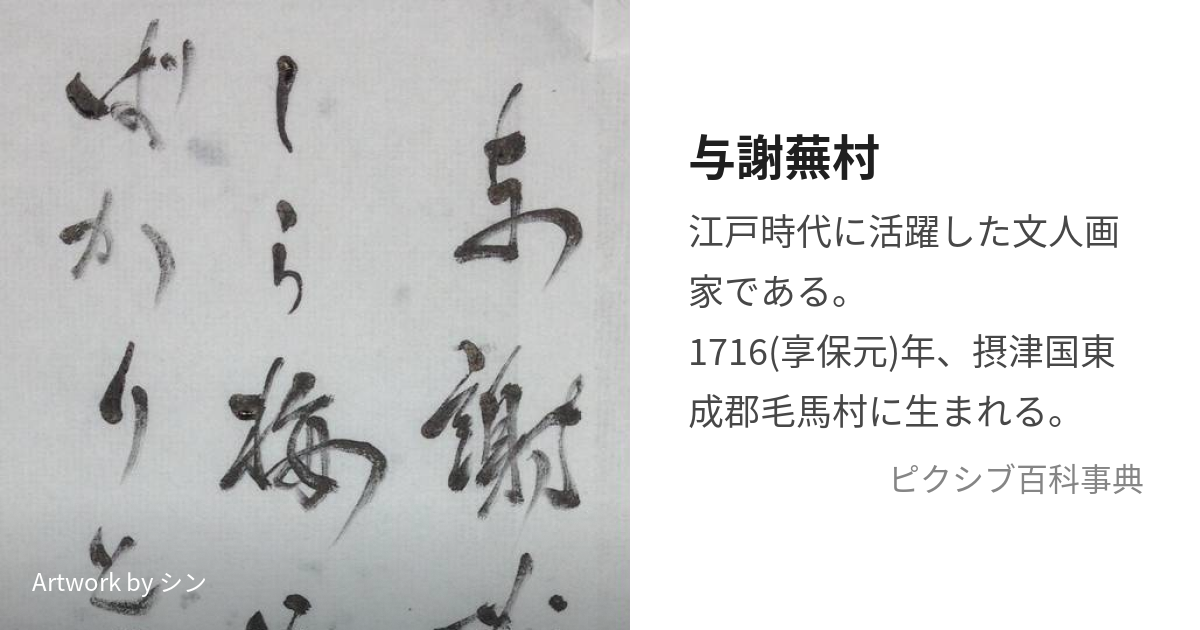 与謝
しら梅
ばかりと
Artwork by シン
与謝蕪村
江戸時代に活躍した文人画
家である。
1716(享保元)年、摂津国東
成郡毛馬村に生まれる。
ピクシブ百科事典